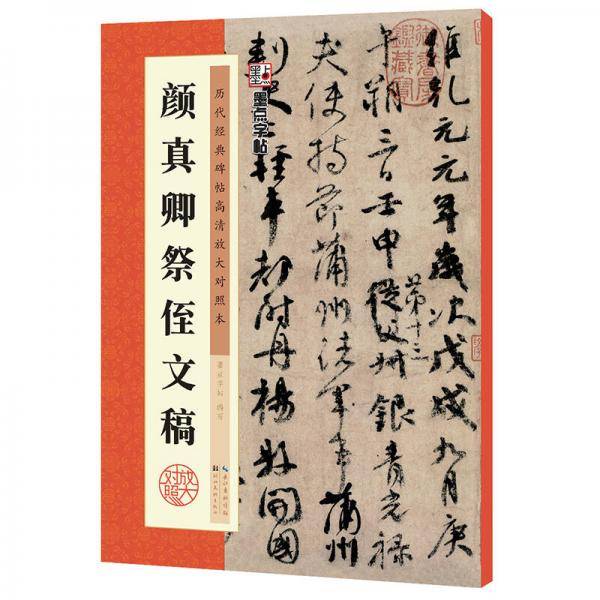 颜真卿祭侄文稿
历代经典碑帖高清放大对照本
墨点字帖 编写
放大
对照
墨点
墨点字帖
维乾元元年岁次戊戌九月庚
午朔三日壬申
第十三
从父
州
银青光禄
夫使持节蒲州诸军事蒲州
刺史
轻车都尉丹杨
开国